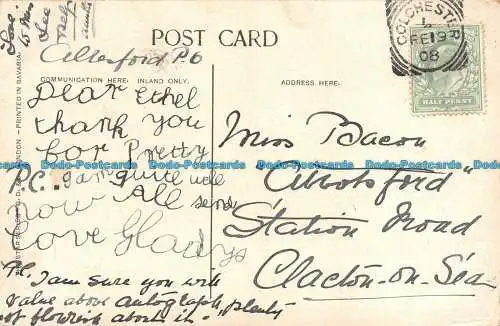 Love
to Miss
Lee
POST CARD
COLCHESTER
FE 19
08
HALF PENNY
Allesford P.O
COMMUNICATION HERE. INLAND ONLY.
ADDRESS HERE.
PRINTED IN BAVARIA.
Dear Ethel
thank you
for Pretty
P.C. I am quite well
now All send
Love Gladys
Miss Bacon
"Abbotsford"
Station Road
Clacton-on-Sea
PS. I am sure you will
value above autograph "plenty
not flowing about it"
Dodo-Postcards Dodo-Postcards Dodo-Postcards Dodo-Postcards Dodo-Postcards